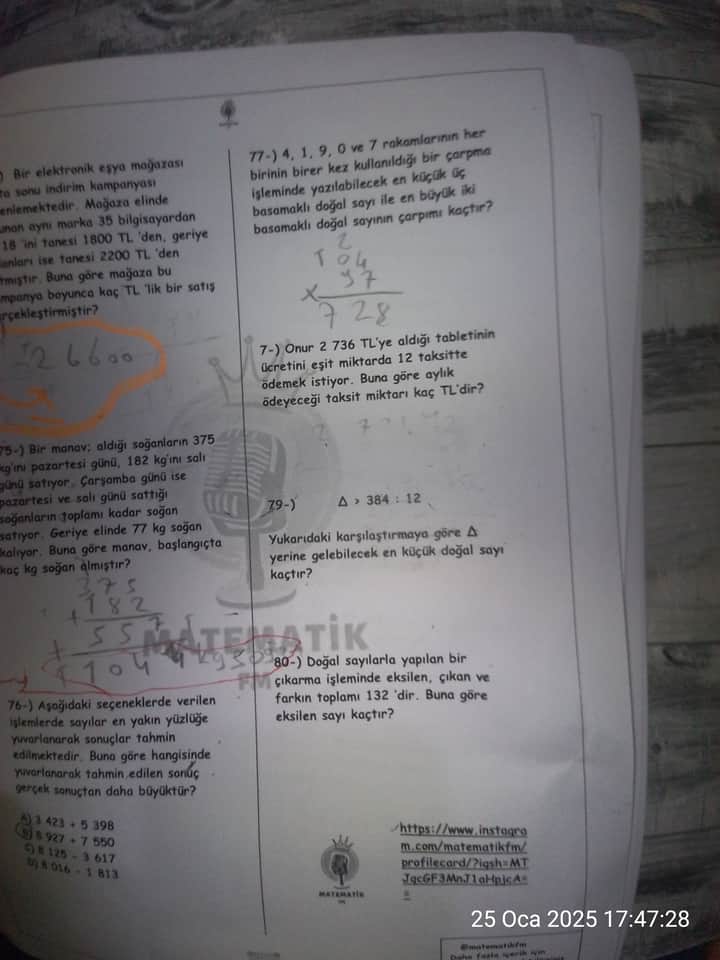 ) Bir elektronik eşya mağazası
ta sonu indirim kampanyası
enlemektedir. Mağaza elinde
unan aynı marka 35 bilgisayardan
18 'ini tanesi 1800 TL 'den, geriye
anları ise tanesi 2200 TL 'den
tmıştır. Buna göre mağaza bu
mpanya boyunca kaç TL 'lik bir satış
rçekleştirmiştir?
26600
75-) Bir manav; aldığı soğanların 375
kg'ını pazartesi günü, 182 kg'ını salı
günü satıyor. Çarşamba günü ise
pazartesi ve salı günü sattığı
soğanların toplamı kadar soğan
satıyor. Geriye elinde 77 kg soğan
kalıyor. Buna göre manav, başlangıçta
kaç kg soğan almıştır?
375
182
+
557
+
76-) Aşağıdaki seçeneklerde verilen
işlemlerde sayılar en yakın yüzlüğe
yuvarlanarak sonuçlar tahmin
edilmektedir. Buna göre hangisinde
yuvarlanarak tahmin edilen sonuç
gerçek sonuçtan daha büyüktür?
A) 3 423 + 5 398
B) 8 927 + 7 550
C) 8 125 - 3 617
D) 8 016 - 1 813
77-) 4, 1, 9, 0 ve 7 rakamlarının her
birinin birer kez kullanıldığı bir çarpma
işleminde yazılabilecek en küçük üç
basamaklı doğal sayı ile en büyük iki
basamaklı doğal sayının çarpımı kaçtır?
2
104
97
x
728
7-) Onur 2 736 TL'ye aldığı tabletinin
ücretini eşit miktarda 12 taksitte
ödemek istiyor. Buna göre aylık
ödeyeceği taksit miktarı kaç TL'dir?
79-) Δ > 384 : 12
Yukarıdaki karşılaştırmaya göre Δ
yerine gelebilecek en küçük doğal sayı
kaçtır?
80-) Doğal sayılarla yapılan bir
çıkarma işleminde eksilen, çıkan ve
farkın toplamı 132 'dir. Buna göre
eksilen sayı kaçtır?
MATEMATİK
FM
MATEMATİK
FM
https://www.instagra
m.com/matematikfm/
profilecard/?igsh=MT
JqcGF3MnJ1aHpjcA=
=
@matematikfm
Daha fazla içerik için
25 Oca 2025 17:47:28